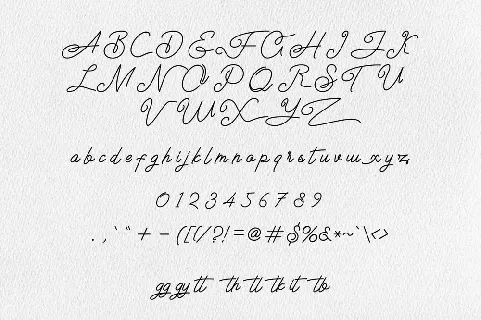 ABCDEFGHIJK
LMNOPQRSTU
VWXYZ
abcdefghijklmnopqrstuvwxyz
0123456789
.,`"+-([(/?!=@#$%&*~`\<>
gg gy tt th tl tk it to